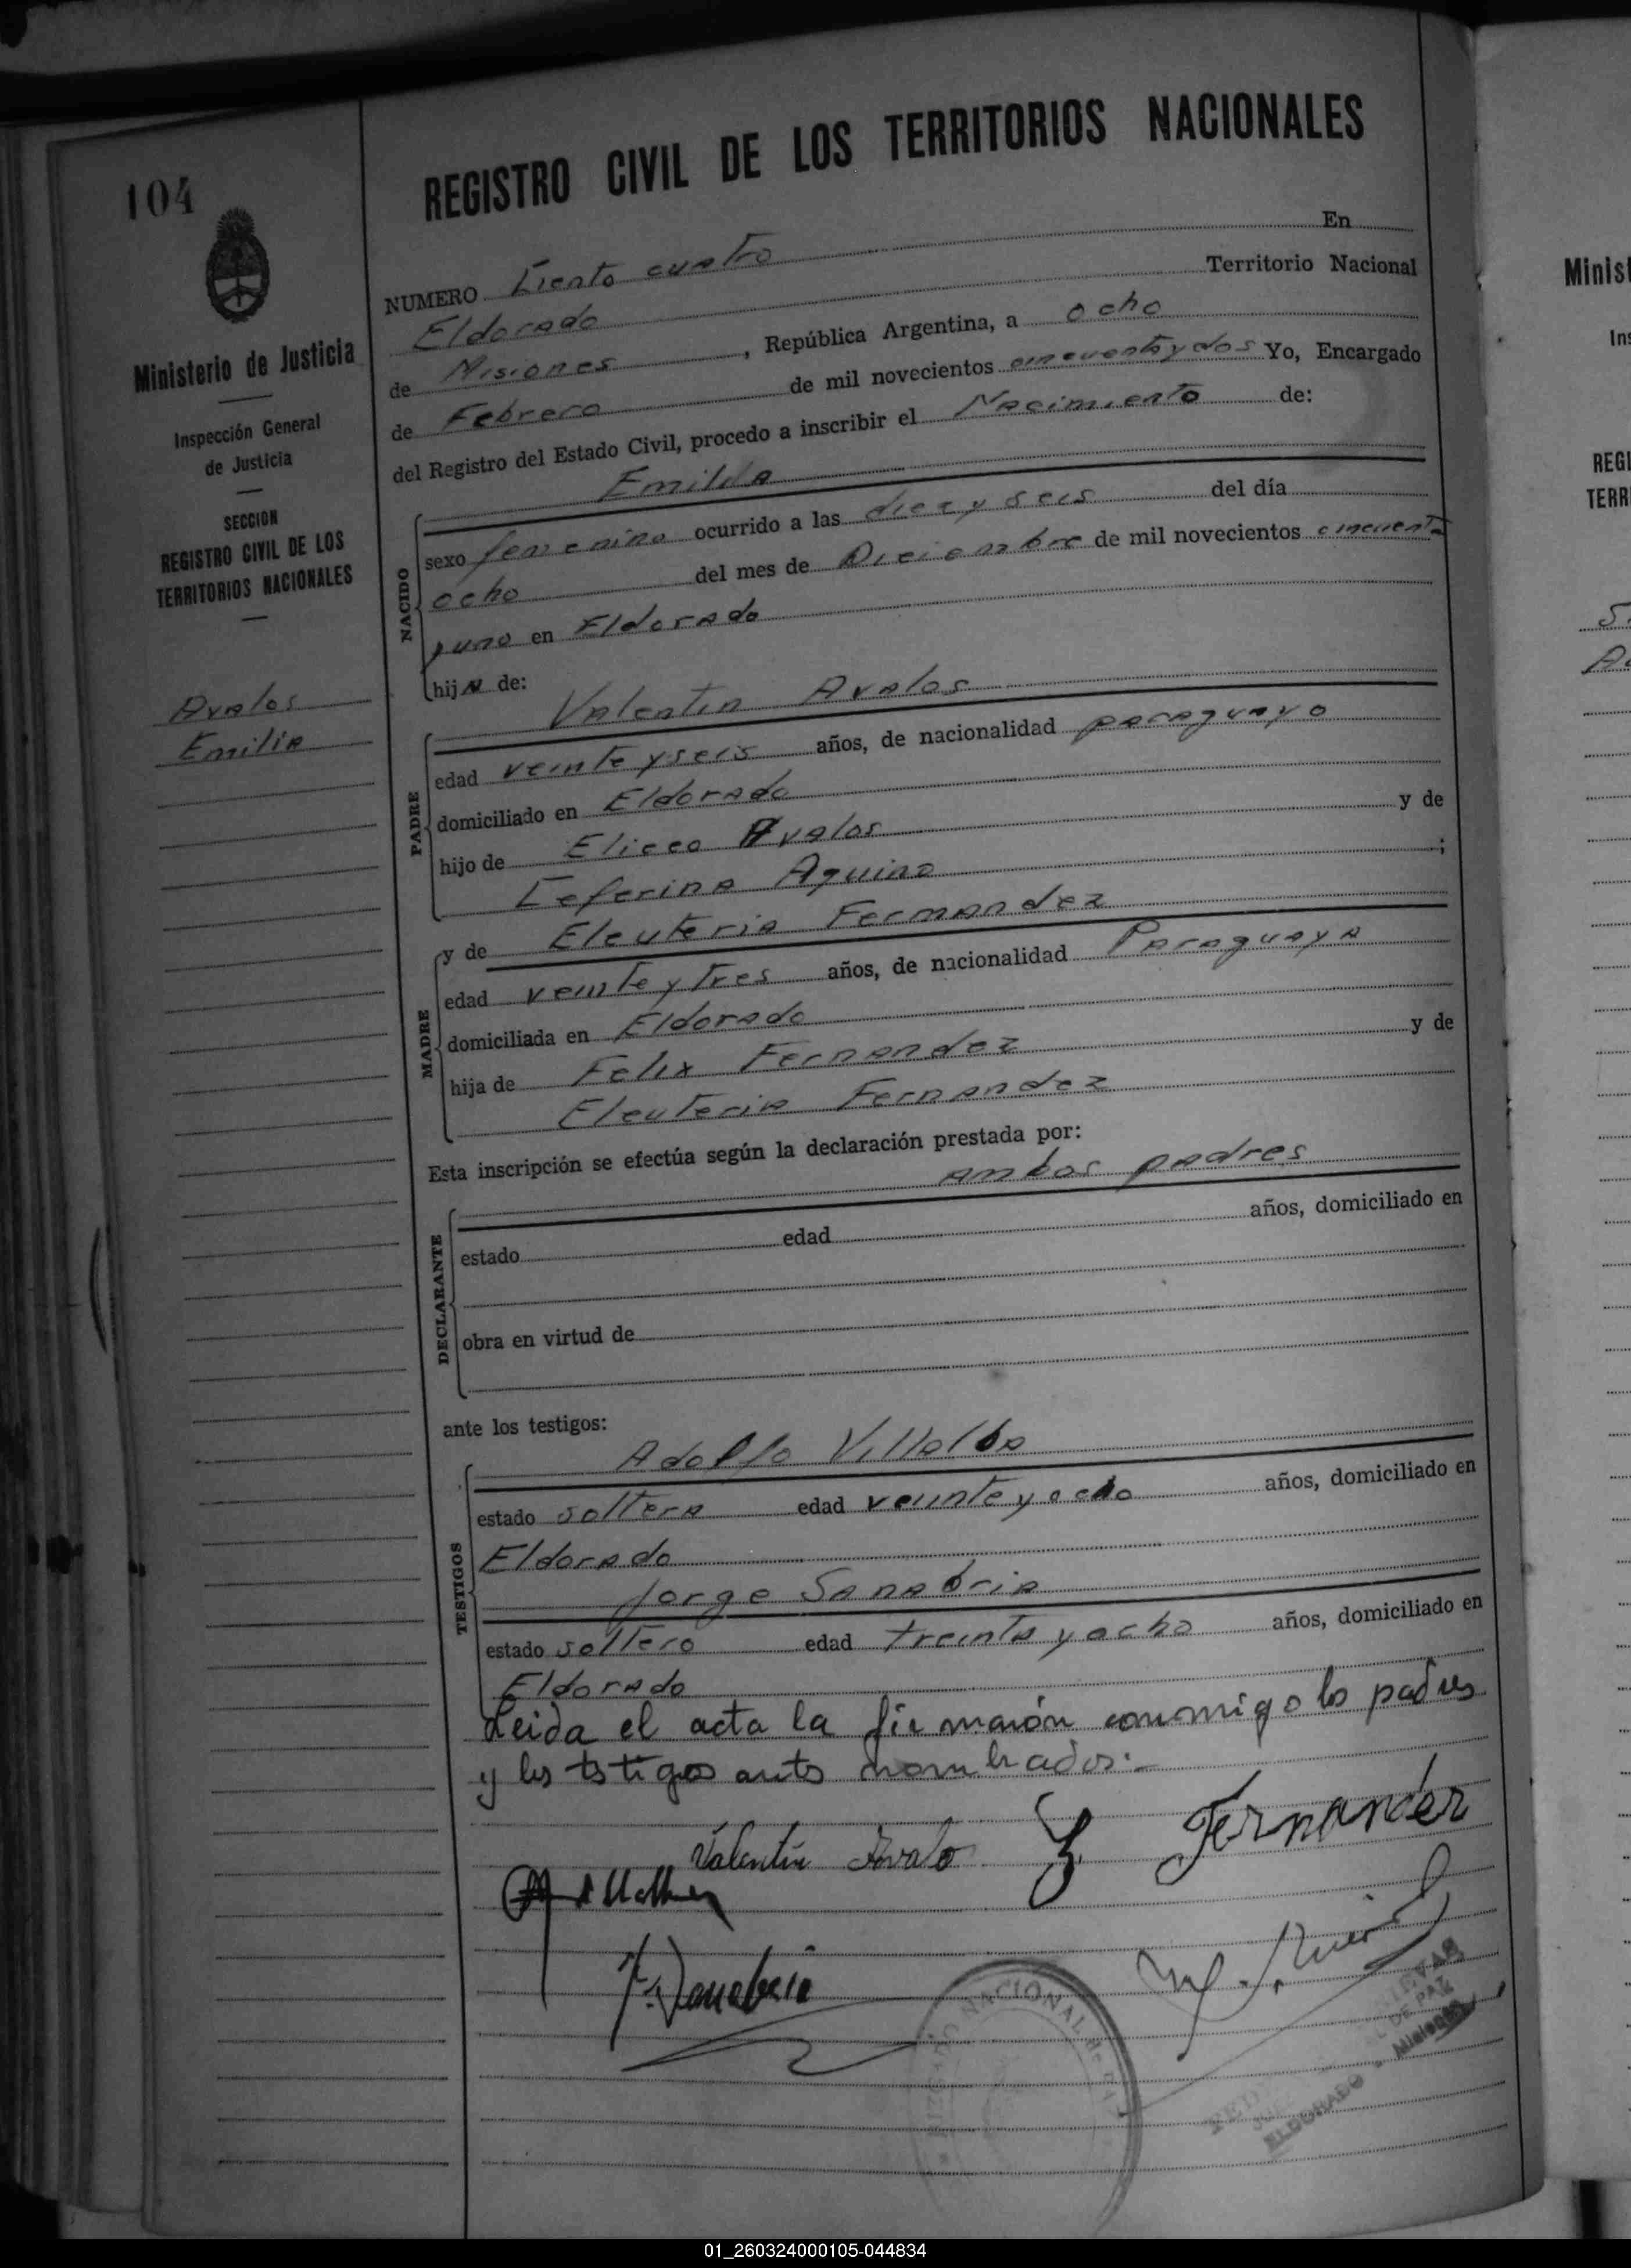 104
REGISTRO CIVIL DE LOS TERRITORIOS NACIONALES
Ministerio de Justicia
Inspección General
de Justicia
SECCION
REGISTRO CIVIL DE LOS
TERRITORIOS NACIONALES
Avalos
Emilia
NUMERO Ciento cuatro En
Eldorado Territorio Nacional
de Misiones, República Argentina, a ocho
de Febrero de mil novecientos cincuenta y dos Yo, Encargado
del Registro del Estado Civil, procedo a inscribir el Nacimiento de:
Emilia
NACIDO
sexo femenino ocurrido a las diez y seis del día
ocho del mes de Diciembre de mil novecientos cincuenta
y uno en Eldorado
hija de:
Valentin Avalos
PADRE
edad veinte y seis años, de nacionalidad paraguayo
domiciliado en Eldorado
hijo de Eliceo Avalos y de
Ceferina Aquino ;
MADRE
y de Eleuteria Fermandez
edad veinte y tres años, de nacionalidad Paraguaya
domiciliada en Eldorado
hija de Felix Fernandez y de
Eleuteria Fernandez
Esta inscripción se efectúa según la declaración prestada por:
ambos padres
DECLARANTE
estado edad años, domiciliado en
obra en virtud de
ante los testigos:
Adolfo Villalba
TESTIGOS
estado soltera edad veinte y ocho años, domiciliado en
Eldorado
Jorge Sanabria
estado soltero edad treinta y ocho años, domiciliado en
Eldorado
Leida el acta la firmarón conmigo lo padres
y los testigos antes nombrados.-
Valentin Avalo Fernander
J. Sanabria
NACIONAL
DE PAZ
ELDORADO - Misiones
Minist
Ins
REGI
TERR
01_260324000105-044834